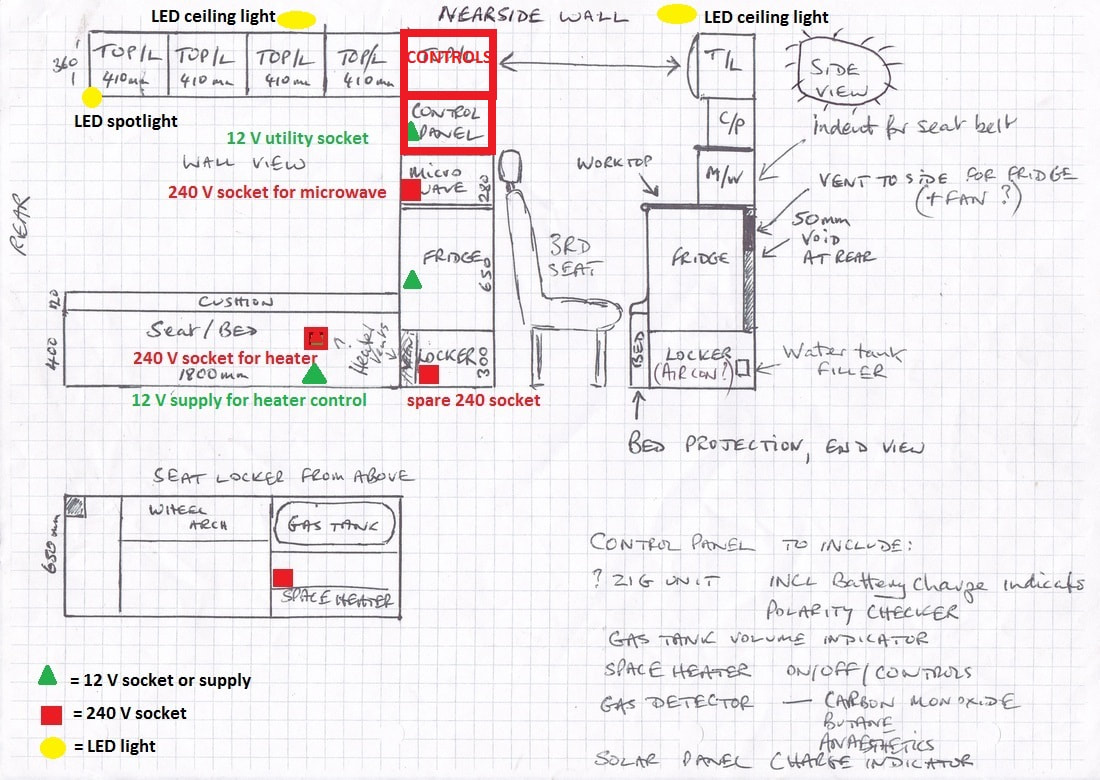 LED ceiling light
NEARSIDE WALL
LED ceiling light
360
TOP/L
410mm
TOP/L
410mm
TOP/L
410mm
TOP/L
410mm
CONTROLS
T/L
SIDE
VIEW
LED spotlight
12 V utility socket
CONTROL
PANEL
C/P
indent for seat belt
WALL VIEW
240 V socket for microwave
MICRO
WAVE
280
WORKTOP
M/W
VENT TO SIDE FOR FRIDGE
(+ FAN ?)
REAR
FRIDGE
650
3RD
SEAT
FRIDGE
50mm
VOID
AT REAR
120
CUSHION
400
Seat/BED
240 V socket for heater
?
Heater
Vents
1800mm
12 V supply for heater control
LOCKER
300
spare 240 socket
BED
LOCKER
(AIRCON?)
Water tank
FILLER
BED PROJECTION, END VIEW
SEAT LOCKER FROM ABOVE
650 mm
WHEEL
ARCH
GAS TANK
SPACE HEATER
CONTROL PANEL TO INCLUDE:
? ZIG UNIT INCL Battery charge indicats
POLARITY CHECKER
GAS TANK VOLUME INDICATOR
SPACE HEATER ON/OFF/CONTROLS
GAS DETECTOR — CARBON MONOXIDE
BUTANE
ANAESTHETICS
SOLAR PANEL CHARGE INDICATOR
= 12 V socket or supply
= 240 V socket
= LED light